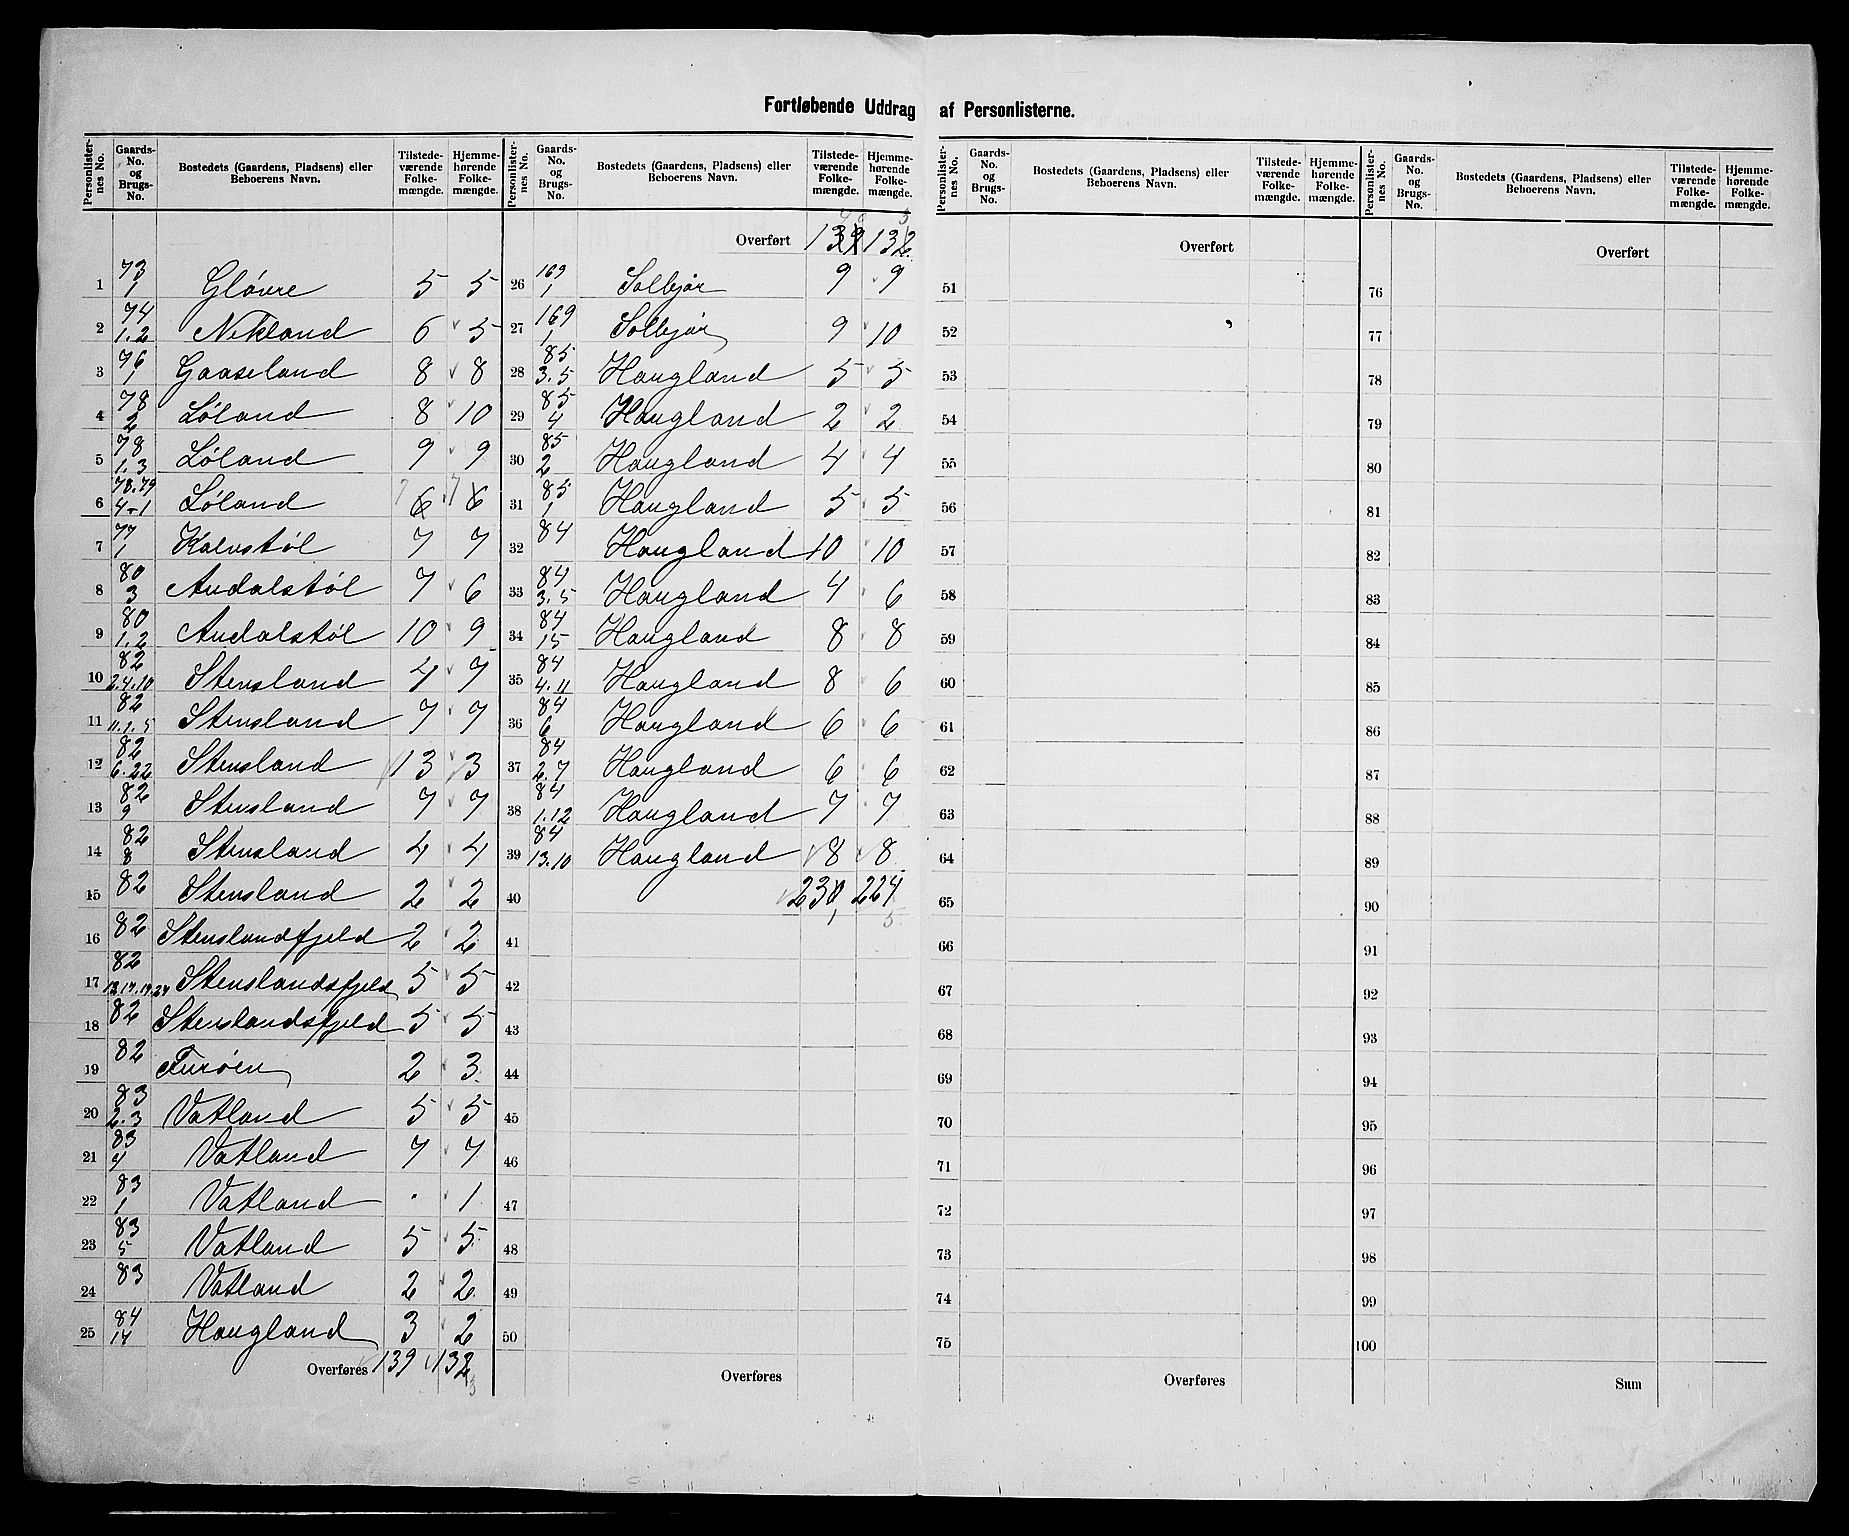 Fortløbende Uddrag af Personlisterne.
Personlisternes No. | Gaards-No. og Brugs-No. | Bostedets (Gaardens, Pladsens) eller Beboerens Navn. | Tilstedeværende Folkemængde. | Hjemmehørende Folkemængde.
1 | 73 / 1 | Gløvre | 5 | 5
2 | 74 / 1.2 | Nekland | 6 | 5
3 | 76 / 1 | Gaaseland | 8 | 8
4 | 78 / 2 | Løland | 8 | 10
5 | 78 / 1.3 | Løland | 9 | 9
6 | 78.79 / 4-1 | Løland | 7 6 | 7 6
7 | 77 / 1 | Kalvstøl | 7 | 7
8 | 80 / 3 | Audalstøl | 7 | 6
9 | 80 / 1.2 | Audalstøl | 10 | 9
10 | 82 / 2.4.10 | Stensland | 4 | 7
11 | 82 / 11.1.5 | Stensland | 7 | 7
12 | 82 / 6.22 | Stensland | 13 | 3
13 | 82 / 9 | Stensland | 7 | 7
14 | 82 / 8 | Stensland | 4 | 4
15 | 82 | Stensland | 2 | 2
16 | 82 | Stenslandfjeld | 2 | 2
17 | 82 / | Stenslandsfjeld | 5 | 5
18 | 82 | Stenslandsfjeld | 5 | 5
19 | 82 | Furøen | 2 | 3
20 | 83 / 2.3 | Vatland | 5 | 5
21 | 83 / 4 | Vatland | 7 | 7
22 | 83 / 1 | Vatland | . | 1
23 | 83 / 5 | Vatland | 5 | 5
24 | 83 | Vatland | 2 | 2
25 | 84 / 14 | Haugland | 3 | 2
Overføres 139 | 132 3
Personlisternes No. | Gaards-No. og Brugs-No. | Bostedets (Gaardens, Pladsens) eller Beboerens Navn. | Tilstedeværende Folkemængde. | Hjemmehørende Folkemængde.
Overført 139 | 132 3
26 | 169 / 1 | Solbjør | 9 | 9
27 | 169 / 1 | Solbjør | 9 | 10
28 | 85 / 3.5 | Haugland | 5 | 5
29 | 85 / 4 | Haugland | 2 | 2
30 | 85 / 2 | Haugland | 4 | 4
31 | 85 / 1 | Haugland | 5 | 5
32 | 84 | Haugland | 10 | 10
33 | 84 / 3.5 | Haugland | 4 | 6
34 | 84 / 15 | Haugland | 8 | 8
35 | 84 / 4.11 | Haugland | 8 | 6
36 | 84 / 6 | Haugland | 6 | 6
37 | 84 / 2.7 | Haugland | 6 | 6
38 | 84 / 1.12 | Haugland | 7 | 7
39 | 84 / 13.10 | Haugland | 8 | 8
40 | 230 1 | 224 5
41
42
43
44
45
46
47
48
49
50
Overføres
Personlisternes No. | Gaards-No. og Brugs-No. | Bostedets (Gaardens, Pladsens) eller Beboerens Navn. | Tilstedeværende Folkemængde. | Hjemmehørende Folkemængde.
Overført
51
52
53
54
55
56
57
58
59
60
61
62
63
64
65
66
67
68
69
70
71
72
73
74
75
Overføres
Personlisternes No. | Gaards-No. og Brugs-No. | Bostedets (Gaardens, Pladsens) eller Beboerens Navn. | Tilstedeværende Folkemængde. | Hjemmehørende Folkemængde.
Overført
76
77
78
79
80
81
82
83
84
85
86
87
88
89
90
91
92
93
94
95
96
97
98
99
100
Sum